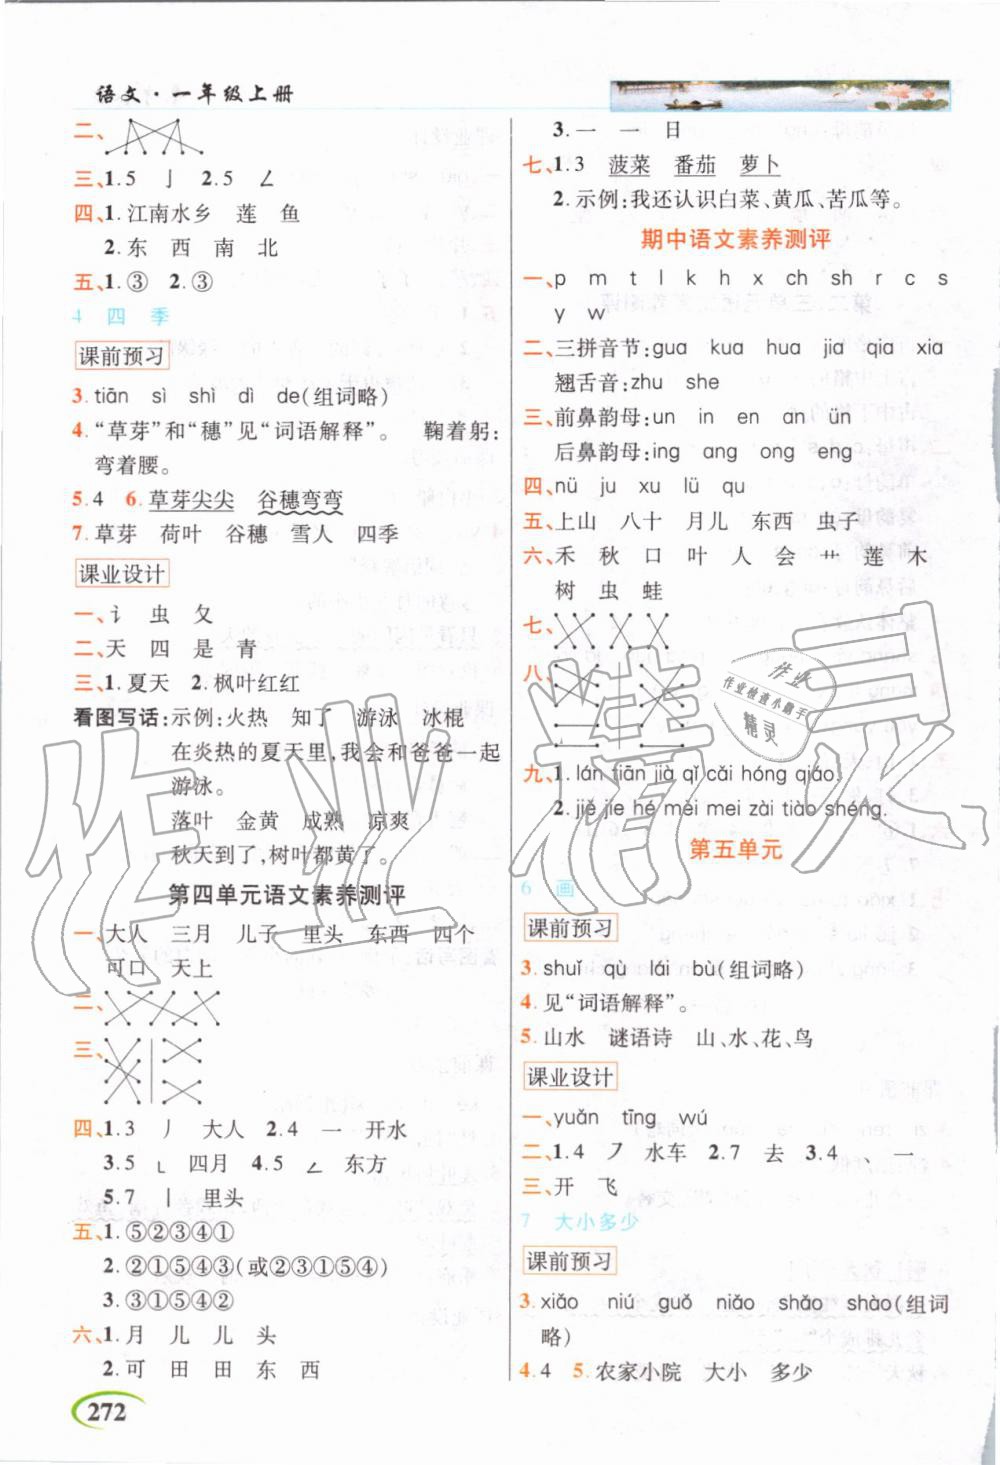 语文·一年级上册
二、
三、1.5 亅 2.5 ㄥ
四、1.江南水乡 莲 鱼
2.东 西 南 北
五、1.③ 2.③
4 四 季
课前预习
3.tiān sì shì dì de(组词略)
4.“草芽”和“穗”见“词语解释”。 鞠着躬:
弯着腰。
5.4 6.草芽尖尖 谷穗弯弯
7.草芽 荷叶 谷穗 雪人 四季
课业设计
一、讠 虫 夂
二、天 四 是 青
三、1.夏天 2.枫叶红红
看图写话:示例:火热 知了 游泳 冰棍
在炎热的夏天里,我会和爸爸一起
游泳。
落叶 金黄 成熟 凉爽
秋天到了,树叶都黄了。
第四单元语文素养测评
一、大人 三月 儿子 里头 东西 四个
可口 天上
二、
三、
四、1.3 丿 大人 2.4 一 开水
3.5 ㄴ 四月 4.5 ㄥ 东方
5.7 丨 里头
五、1.⑤②③④①
2.②①⑤④③(或②③①⑤④)
3.③①⑤④②
六、1.月 儿 儿 头
2.可 田 田 东 西
272
3.一 一 日
七、1.3 菠菜 番茄 萝卜
2.示例:我还认识白菜、黄瓜、苦瓜等。
期中语文素养测评
一、p m t l k h x ch sh r c s
y w
二、三拼音节:gua kua hua jia qia xia
翘舌音:zhu she
三、前鼻韵母:un in en an ün
后鼻韵母:ing ang ong eng
四、nü ju xu lü qu
五、上山 八十 月儿 东西 虫子
六、禾 秋 口 叶 人 会 艹 莲 木
树 虫 蛙
七、
八、
九、1.lán tiān jià qǐ cǎi hóng qiáo.
2.jiě jie hé mèi mei zài tiào shéng.
第五单元
6 画
课前预习
3.shuǐ qù lái bù(组词略)
4.见“词语解释”。
5.山水 谜语诗 山、水、花、鸟
课业设计
一、yuǎn tīng wú
二、1.4 ㇇ 水车 2.7 去 3.4 、 一
三、开 飞
7 大小多少
课前预习
3.xiǎo niú guǒ niǎo shǎo shào(组词
略)
4.4 5.农家小院 大小 多少
作业精灵
作业
作业检查小助手
精灵